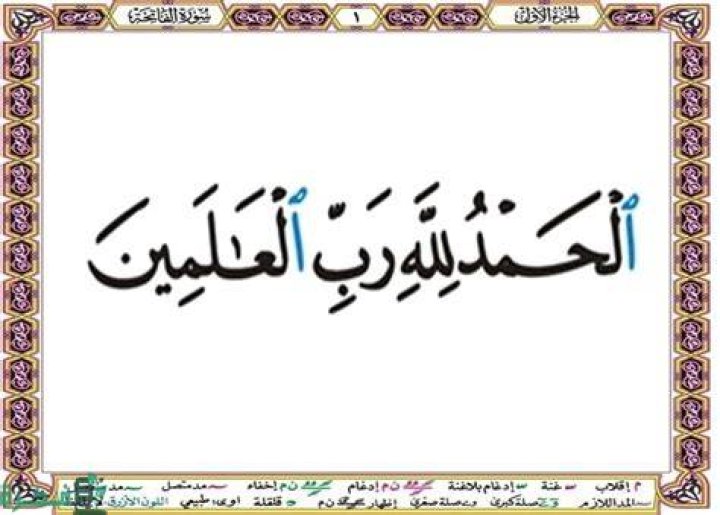 الجزء الأول
١
سورة الفاتحة
ٱلْحَمْدُ لِلَّهِ رَبِّ ٱلْعَٰلَمِينَ
م إقلاب غنة إدغام بلاغنة ن م إدغام ن م إخفاء مد متصل مد
المد اللازم صلة كبرى صلة صغرى إظهار ن م قلقلة اوى: طبيعي اللون الأزرق